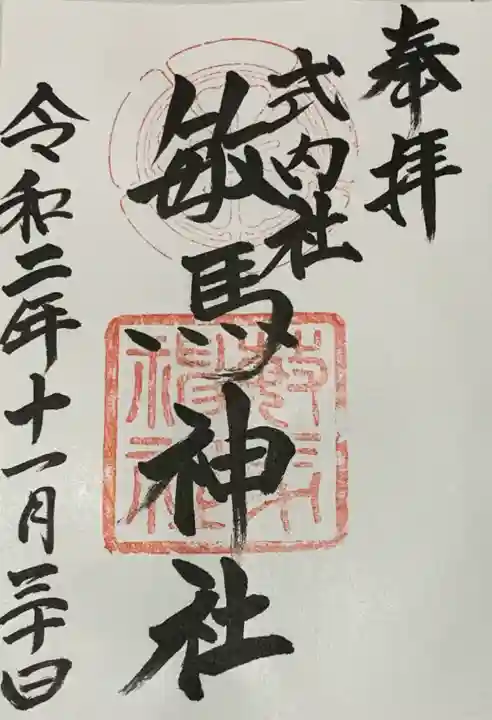 奉拝
式内社
敏馬神社
令和二年十一月三十日
敏馬神社